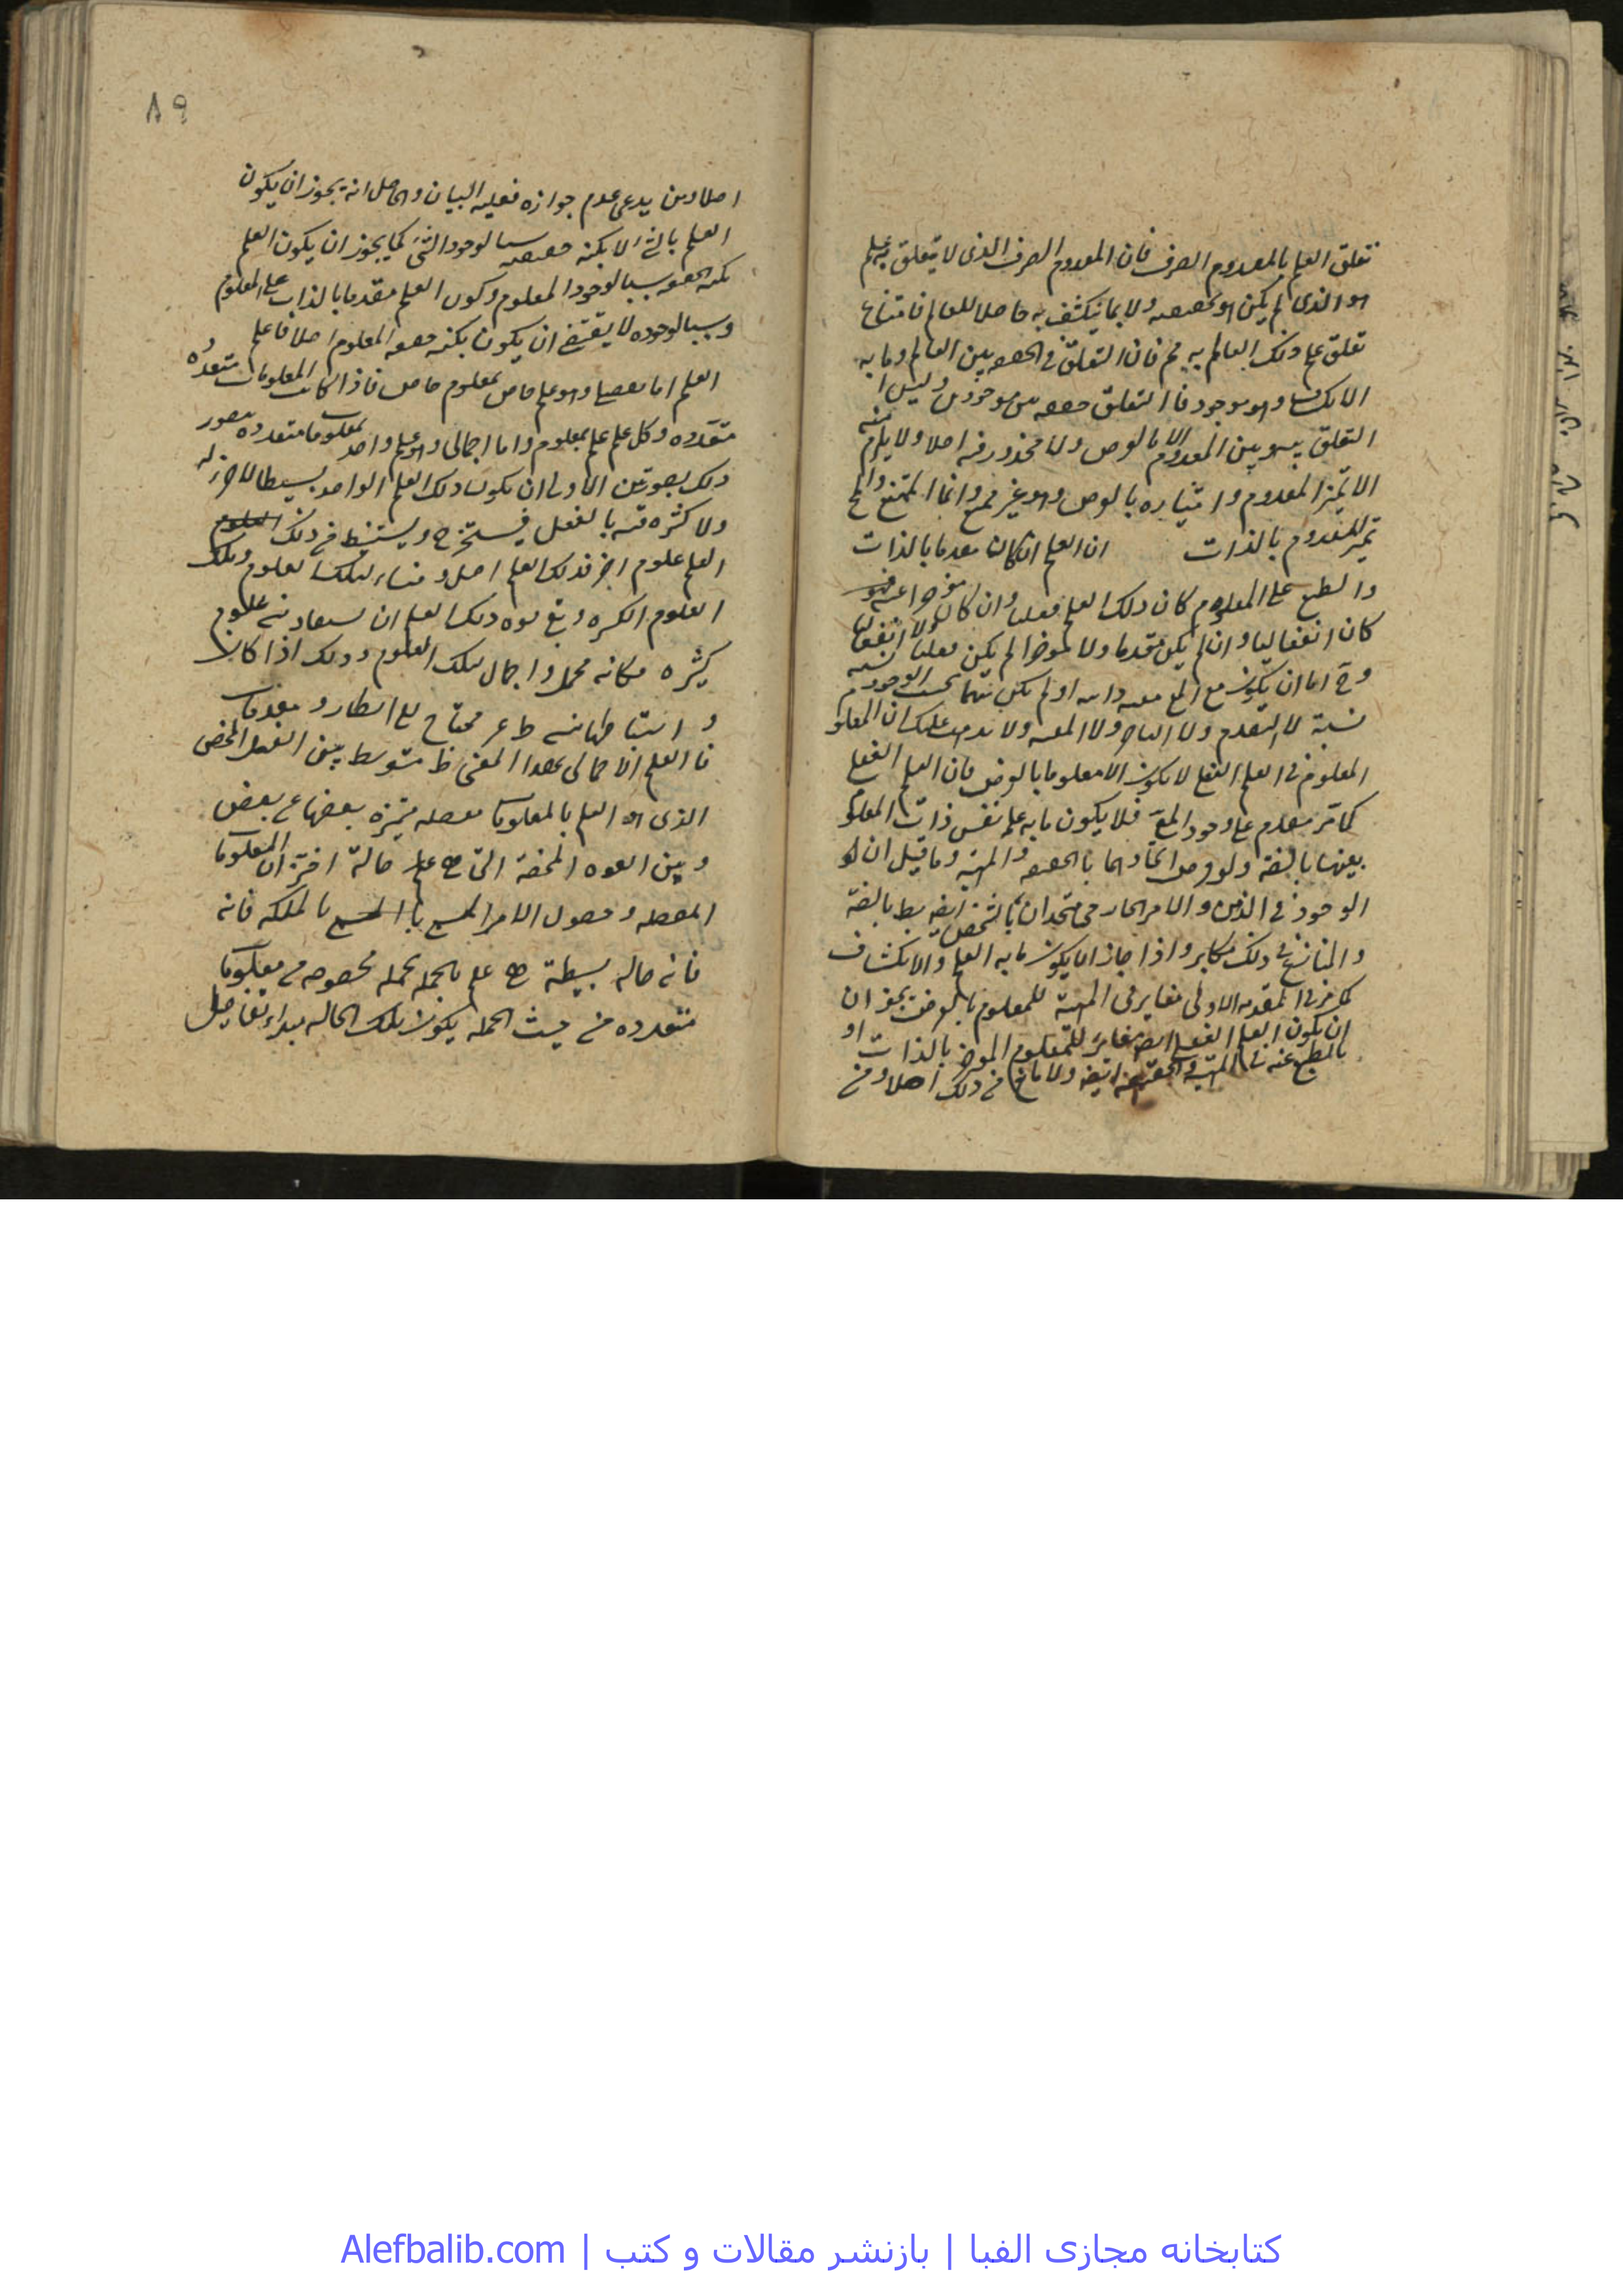 تعلق العلم بالمعدوم الصرف فان المعدوم الصرف الذى لا يتعلق به علم
هو الذى لم يكن هو بحقيقته ولا بما ينكشف به حاصلا للعالم فامتناع
تعلق علم ذلك العالم به مم فان التعلق فى الحقيقة بين العالم وما به
الانكشاف وهو موجود فالتعلق حقيقة بين موجودين وليس
التعلق بينه وبين المعدوم الا بالعرض ولا محذور فيه اصلا ولا يلزم منه
الا تميز المعدوم وامتيازه بالعرض وهو غير ممتنع وانما الممتنع
تميز المعدوم بالذات ان العلم ان كان مقدما بالذات
والطبع على المعلوم كان ذلك العلم فعليا وان كان مؤخرا عنه
كان انفعاليا وان لم يكن متقدما ولا مؤخرا لم يكن فعليا ولا انفعاليا
وح اما ان يكون مع المع معية ذاتية او لم يكن بينهما بحسب الوجود نسبة
نسبة لا التقدم ولا التاخر ولا المعية ولا يذهب عليك ان المعلوم
المعلوم فى العلم الفعلى لا يكون الا معلوما بالعرض فان العلم الفعلى
كما مر مقدم على وجود المع فلا يكون ما به علم نفس ذات المعلوم
بعينها بالضرورة ولو فرض اتحادهما بالحقيقة والمهية وما قيل ان
الوجود فى الذهن والامر الخارجى متحدان بالشخص ايضا بط بالضرورة
والمنازع فى ذلك مكابر واذا جاز ان يكون ما به العلم والانكشاف
كما مر فى المقدمة الاولى مغاير فى المهية للمعلوم بالعرض يجوز ان
ان يكون العلم الفعلى ايضا مغاير للمعلوم المؤخر بالذات او
بالطبع عنه فى المهية والحقيقة ايضا ولا مانع من ذلك اصلا ومن
٨٩
اصلا ومن يدعى عدم جوازه فعليه البيان والحاصل انه يجوز ان يكون
العلم بالشئ لا بكنه حقيقته سببا لوجود الشئ كما يجوز ان يكون العلم
بكنه الحقيقة سببا لوجود المعلوم وكون العلم مقدما بالذات على المعلوم
وسببا لوجوده لا يقتضى ان يكون بكنه حقيقة المعلوم اصلا فاعلم
العلم اما تفصيلى وهو علم خاص بمعلوم خاص فاذا كانت المعلومات متعددة
متعددة وكل علم علم بمعلوم واما اجمالى وهو علم واحد بمعلومات متعددة يتصور
ذلك بصورتين الاولى ان يكون ذلك العلم الواحد بسيطا لا جزء له
ولا كثرة فيه بالفعل فيستخرج ويستنبط من ذلك
العلم علوم اخر فذلك العلم اصل ومنشأ لتلك العلوم وتلك
العلوم الكثيرة وفى قوة ذلك العلم ان يستفاد منه علوم
كثيرة فكانه مجمل واجمال لتلك العلوم وذلك اذا كان
و استنباطها منه محتاج الى انظار ومقدمات
فالعلم الاجمالى بهذا المعنى متوسط بين الفعل المحض
الذى هو العلم بالمعلومات مفصلة متميزة بعضها عن بعض
وبين القوة المحضة التى هى حالة اختزان المعلومات
المفصلة وحصول الامر بالملكة فانه
فانه حالة بسيطة هى علم بالجملة بجملة مخصوصة من معلومات
متعددة من حيث الجملة يكون تلك الحالة مبدأ تفاصيل
كتابخانه مجازى الفبا | بازنشر مقالات و كتب | Alefbalib.com